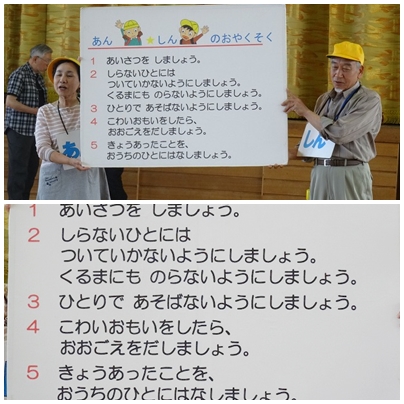 あんしんのおやくそく
1 あいさつを しましょう。
2 しらないひとには
ついていかないようにしましょう。
くるまにも のらないようにしましょう。
3 ひとりで あそばないようにしましょう。
4 こわいおもいをしたら、
おおごえをだしましょう。
5 きょうあったことを、
おうちのひとにはなしましょう。
あ
しん
1 あいさつを しましょう。
2 しらないひとには
ついていかないようにしましょう。
くるまにも のらないようにしましょう。
3 ひとりで あそばないようにしましょう。
4 こわいおもいをしたら、
おおごえをだしましょう。
5 きょうあったことを、
おうちのひとにはなしましょう。